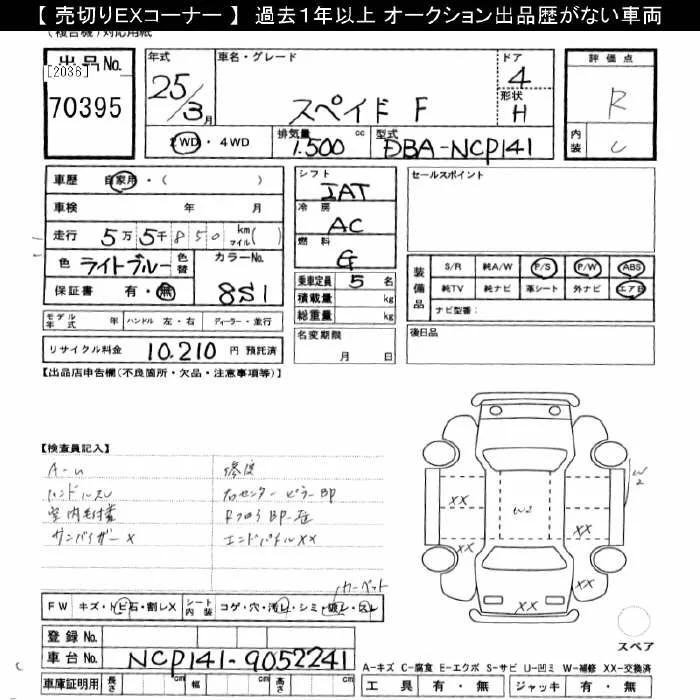 【 売切りEXコーナー 】 過去１年以上 オークション出品歴がない車両
(複合機) 対応用紙
出品No.
[2036]
70395
年式
25/3月
車名・グレード
スペイド F
ドア
4
形状
H
2WD・4WD
排気量 1.500 cc
型式 DBA-NCP141
評価点
R
内装
C
車歴 自家用・( )
車検 年 月
走行 5万5千850 km マイル( )
色 ライトブルー 色替
カラーNo. 8S1
保証書 有・無
シフト
IAT
冷房
AC
燃料
G
乗車定員 5 名
積載量 kg
総重量 kg
セールスポイント
装備品
S/R 純A/W P/S P/W ABS
純TV 純ナビ 革シート 外ナビ エアB
ナビ型番:
モデル年式 年 ハンドル 左・右 ディーラー・並行
リサイクル料金 10.210 円 預託済
名変期限
月 日
後日品
【出品店申告欄(不良箇所・欠品・注意事項等)】
【検査員記入】
A-U
ハンドルスレ
室内毛付着
サンバイザー X
修復
右センターピラーBP
RフロアBP-左
エンドパネルXX
カーペット
FW キズ・トビ石・割レX シート内装 コゲ・穴・汚レ・シミ・破レ・スレ
W2
W2
XX
XX
XX
XX
XX
スペア
登録No.
車台No. NCP141-9052241
車庫証明用 長さ cm 幅 cm 高さ cm
A-キズ C-腐食 E-エクボ S-サビ U-凹ミ W-補修 XX-交換済
工具 有・無 ジャッキ 有・無